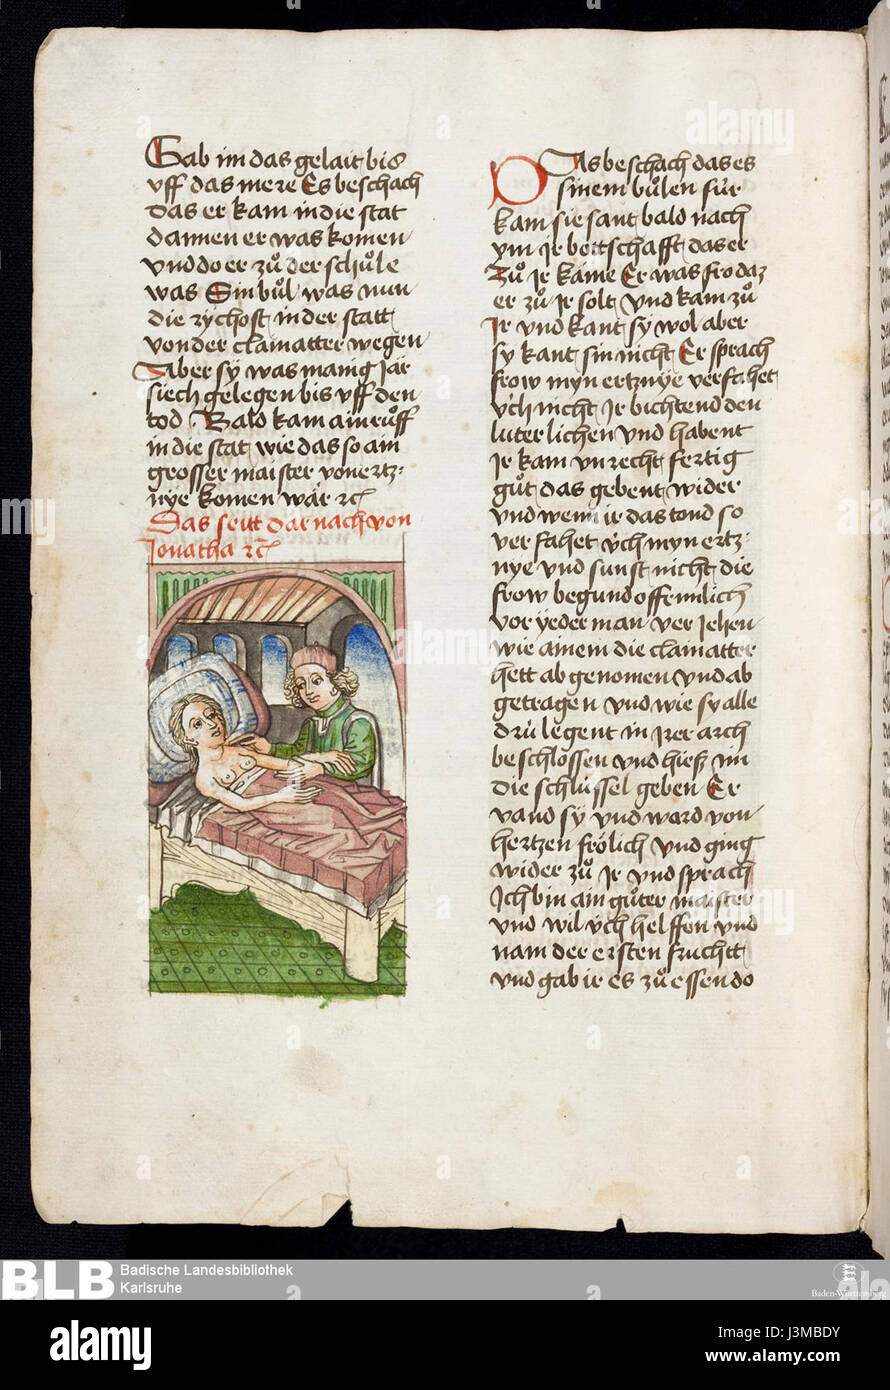 Gab im das gelait bis
vff das mere Es beschach
das er kam in die stat
dannen er was komen
vnd do er zuͦ der schuͦle
was Sin buͦl was nun
die rychost in der statt
von der clainatter wegen
Aber sy was manig jar
siech gelegen bis vff den
tod Bald kam ain ruͦff
in die stat wie das so ain
grosser maister von ertz-
nye komen wär ⁊c
Das seit dar nach von
Jonatha ⁊c
DAs beschach das es
sinem buͦlen für
kam sie sant bald nach
ym Jr bottschafft das er
Zuͦ Jr käme Er was fro daz
er zuͦ Jr solt vnd kam zuͦ
Jr vnd kant sy wol aber
sy kant sin nicht Er sprach
frow myn ertznye verfahet
v́ch nicht Jr bichtend den
luterlichen vnd habent
Jr kain vnrecht fertig
guͦt das gebent wider
vnd wenn ir das tond so
verfahet v́ch myn ertz-
nye vnd sunst nicht die
frow begund offennlich
vor yederman verJehen
wie ainem die clainatter
hett ab genomen vnd ab
getragen vnd wie sy alle
drü legent in irer arch
beschlossen vnd hiesz im
die schlüssel geben Er
vand sy vnd ward von
hertzen frölich vnd ging
wider zuͦ Jr vnd sprach
Ich bin ain guͦter maister
vnd wil v́ch helffen vnd
nam der ersten fruchtt
vnd gab ir es zuͦ essen do
BLB
Badische Landesbibliothek
Karlsruhe
Baden-Württemberg
alamy
Image ID: J3MBDY
www.alamy.com